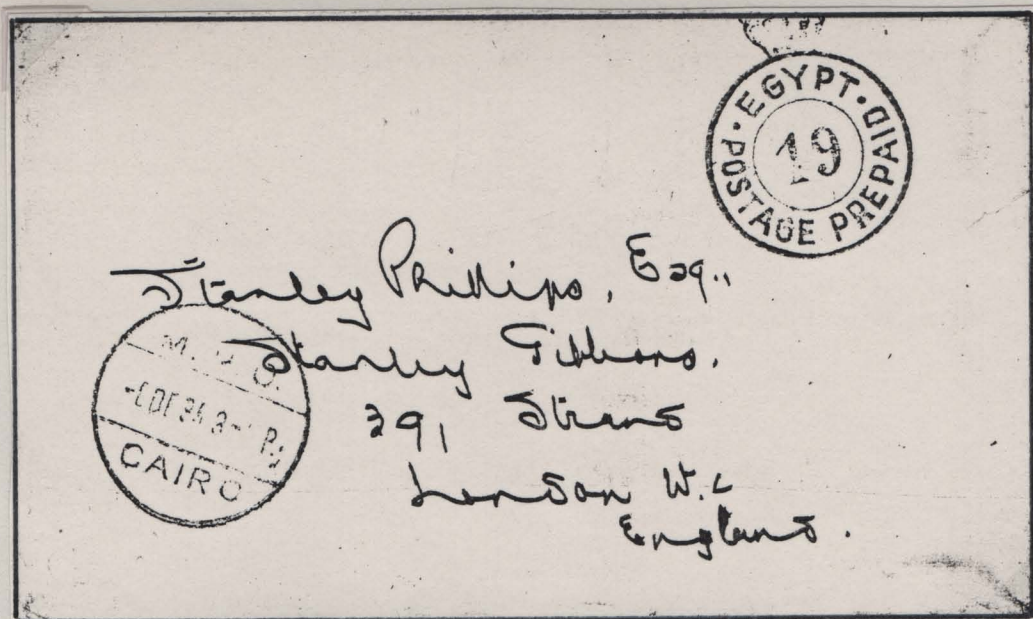 EGYPT · POSTAGE PREPAID ·
19
Stanley Phillips, Esq.,
Stanley Gibbons,
391 Strand
London W.C
England.
CAIRO